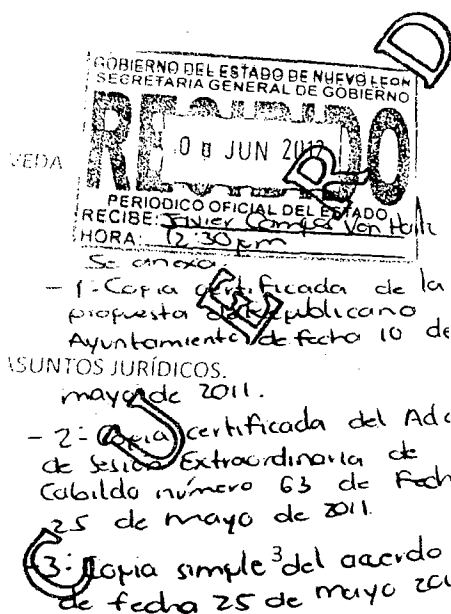 GOBIERNO DEL ESTADO DE NUEVO LEON
SECRETARIA GENERAL DE GOBIERNO
RECIBIDO
JUN
VEDA
PERIODICO OFICIAL DEL ESTADO
RECIBE: Javier Campos Von
HORA: 12:30pm
Se anexa:
- 1: Copia certificada de la
propuesta del Republicano
Ayuntamiento de fecha 10 de
ASUNTOS JURÍDICOS.
mayo de 2011.
- 2: Copia certificada del
de Sesión Extraordinaria de
Cabildo número 63 de Fech
25 de mayo de 2011.
- 3: Copia simple 3 del acuerdo
de fecha 25 de mayo